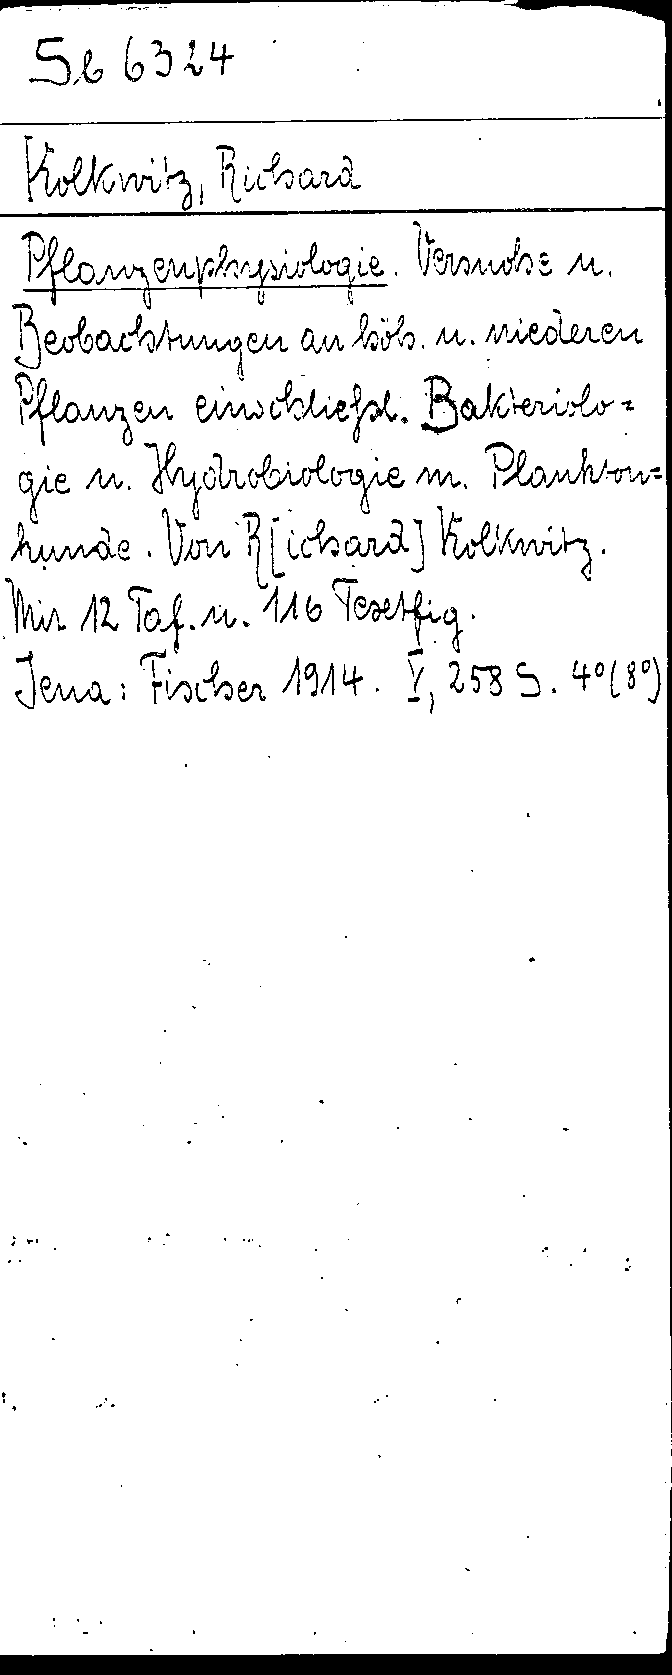 Sb 6324
Kolkwitz, Richard
Pflanzenphysiologie. Versuche u.
Beobachtungen an höh. u. niederen
Pflanzen einschließl. Bakteriolo=
gie u. Hydrobiologie m. Plankton=
kunde. Von R[ichard] Kolkwitz.
Mit 12 Taf. u. 116 Textfig.
Jena: Fischer 1914. V, 258 S. 4°(8°)